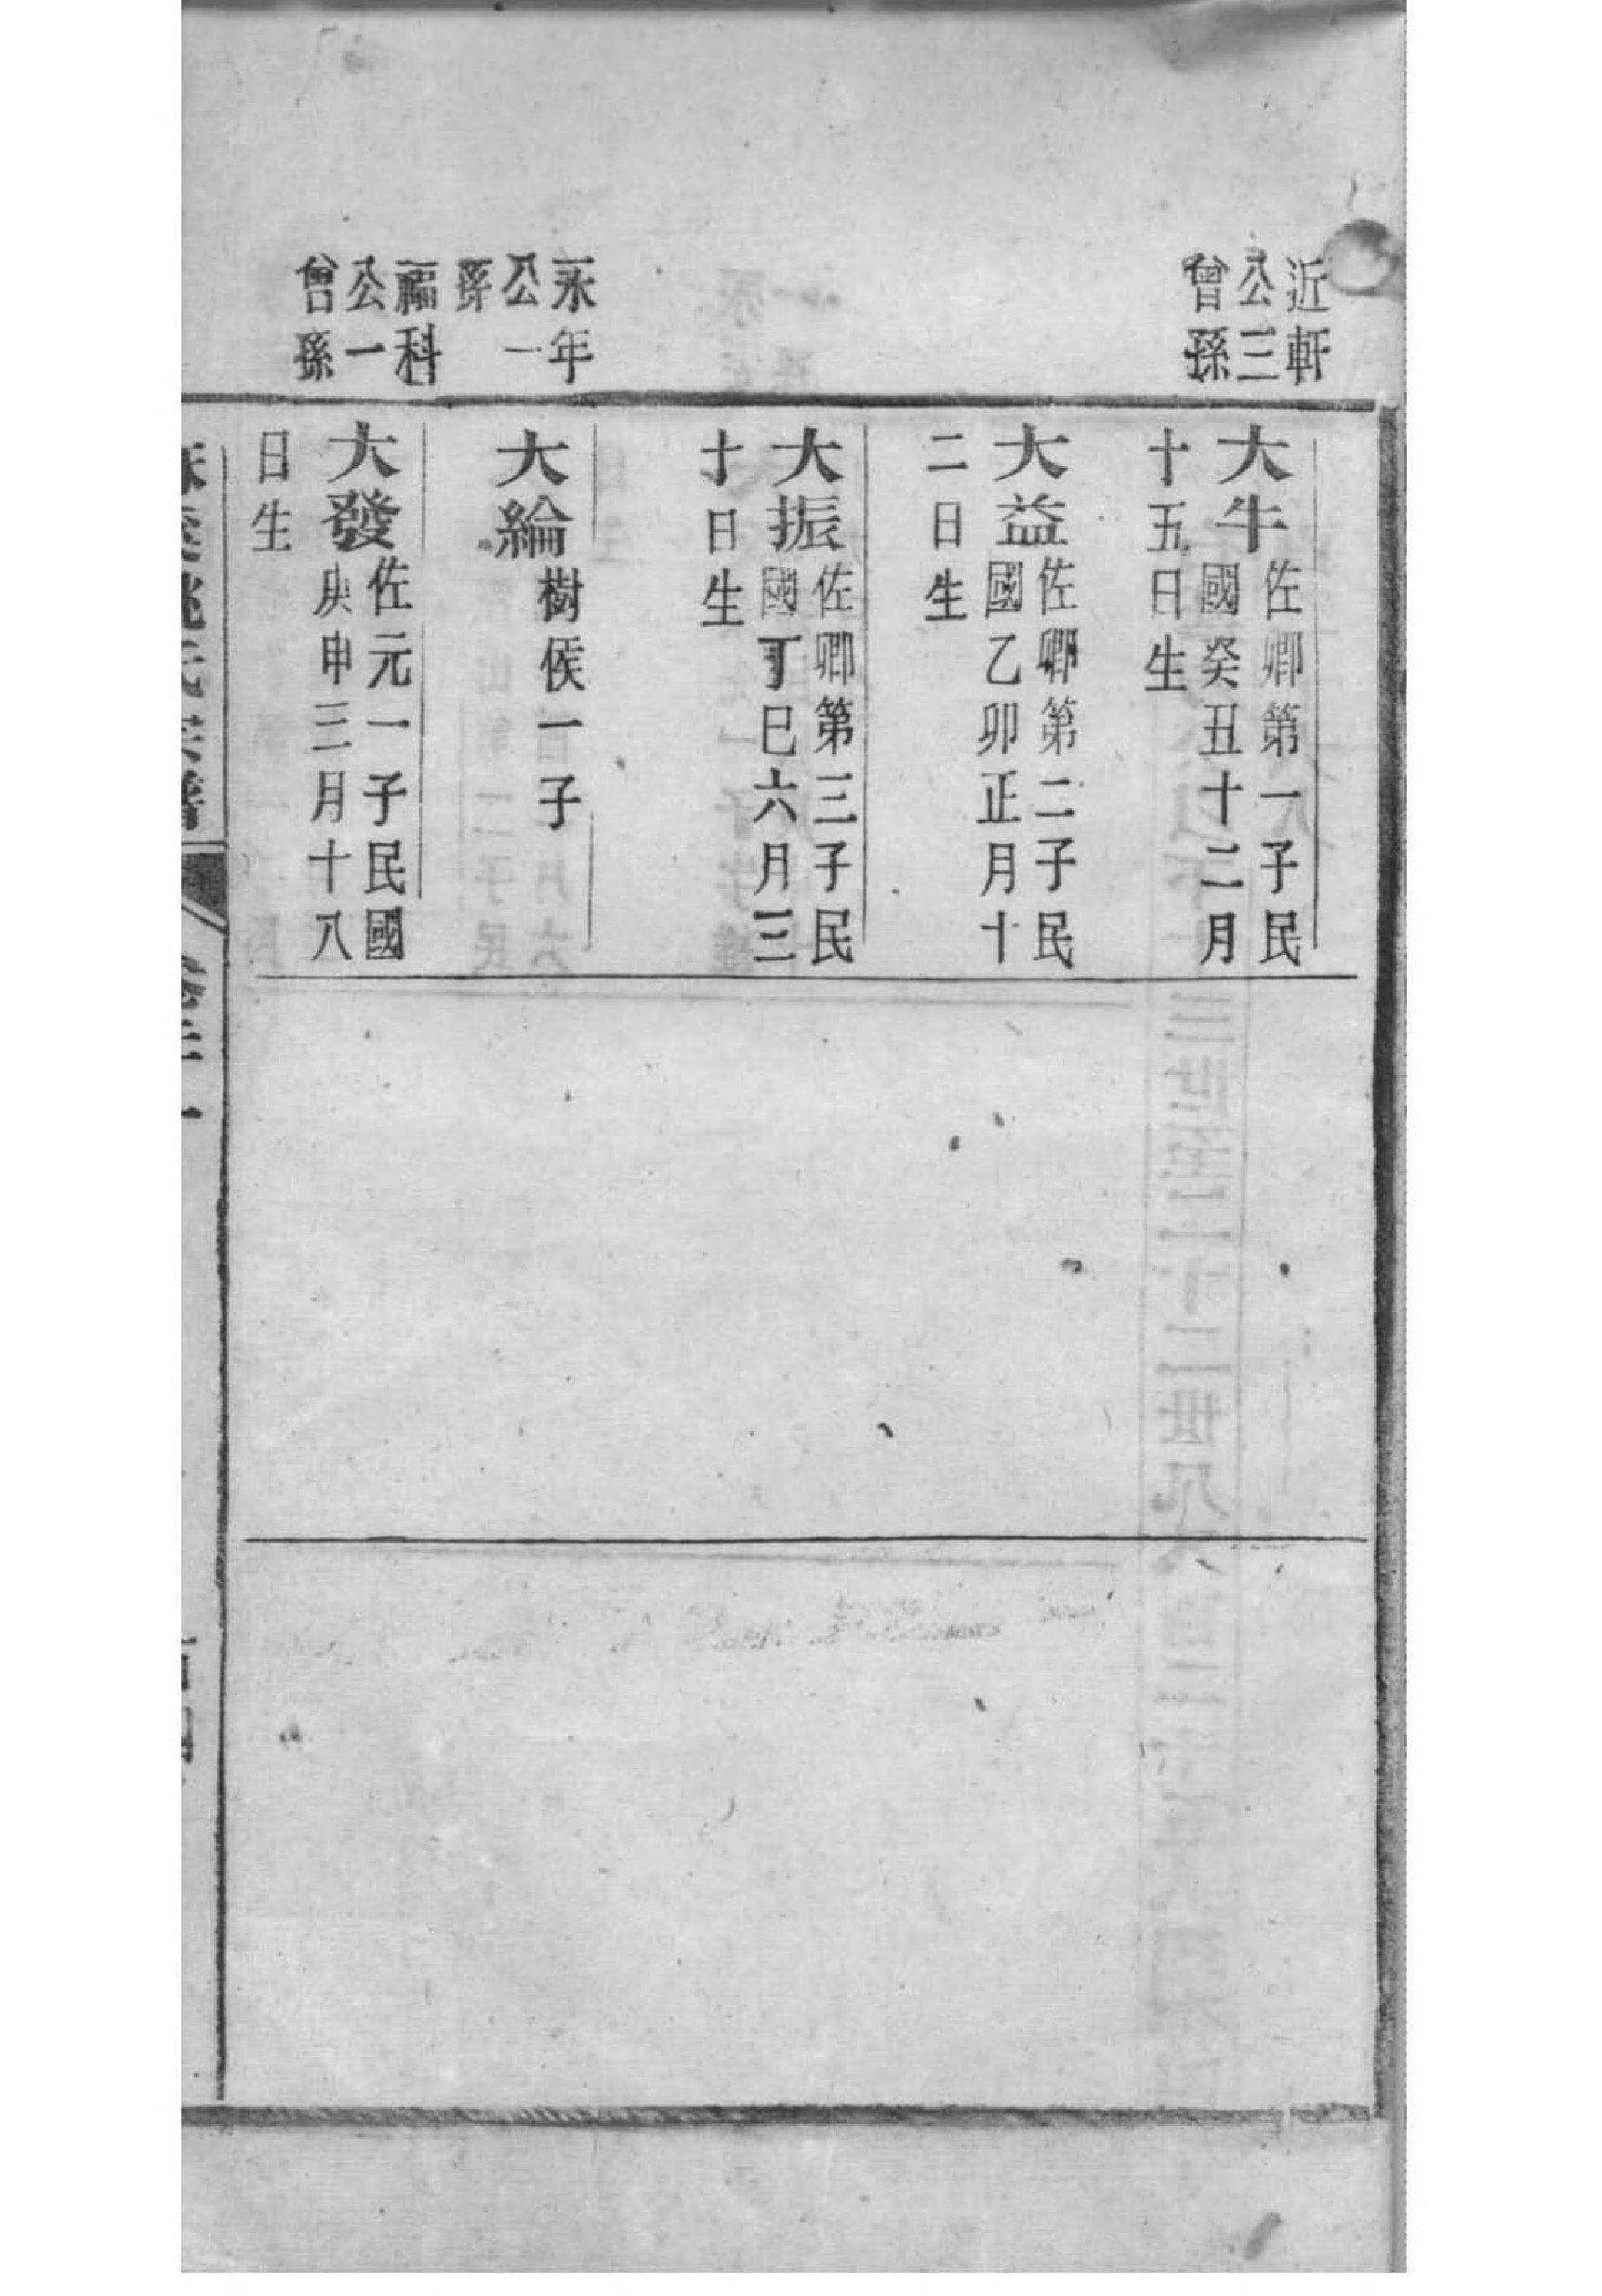 近軒
公三
曾孫
大牛
佐卿第一子民
國癸丑十二月
十五日生
大益
佐卿第二子民
國乙卯正月十
二日生
大振
佐卿第三子民
國丁巳六月三
十日生
永年
公一
孫
大綸
樹侯一子
福科
公一
曾孫
大發
佐元一子民國
庚申三月十八
日生